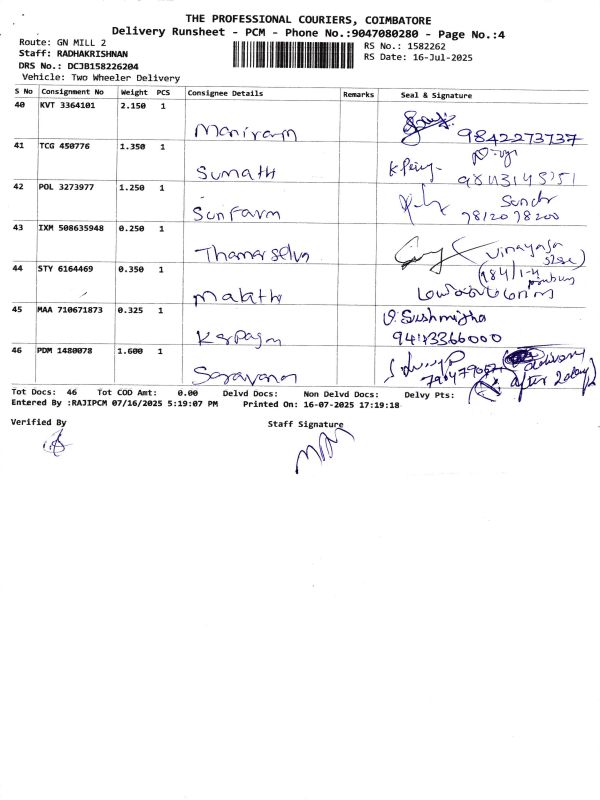 THE PROFESSIONAL COURIERS, COIMBATORE
Delivery Runsheet - PCM - Phone No.:9047080280 - Page No.:4
Route: GN MILL 2
RS No.: 1582262
Staff: RADHAKRISHNAN
RS Date: 16-Jul-2025
DRS No.: DCJB158226204
Vehicle: Two Wheeler Delivery
S No Consignment No Weight PCS Consignee Details Remarks Seal & Signature
40 KVT 3364101 2.150 1
Maniram 9842273737
41 TCG 450776 1.350 1
Sumathi
42 POL 3273977 1.250 1
Sun Farm 7812078200
43 IXM 508635948 0.250 1
Thamarselva Vinayaga
44 STY 6164469 0.350 1
Malathi
45 MAA 710671873 0.325 1 V. Sushmitha
Karpagam
46 PDM 1480078 1.600 1 delivery
Saravanan after 2 days
Tot Docs: 46 Tot COD Amt: 0.00 Delvd Docs: Non Delvd Docs: Delvy Pts:
Entered By :RAJIPCM 07/16/2025 5:19:07 PM Printed On: 16-07-2025 17:19:18
Verified By Staff Signature